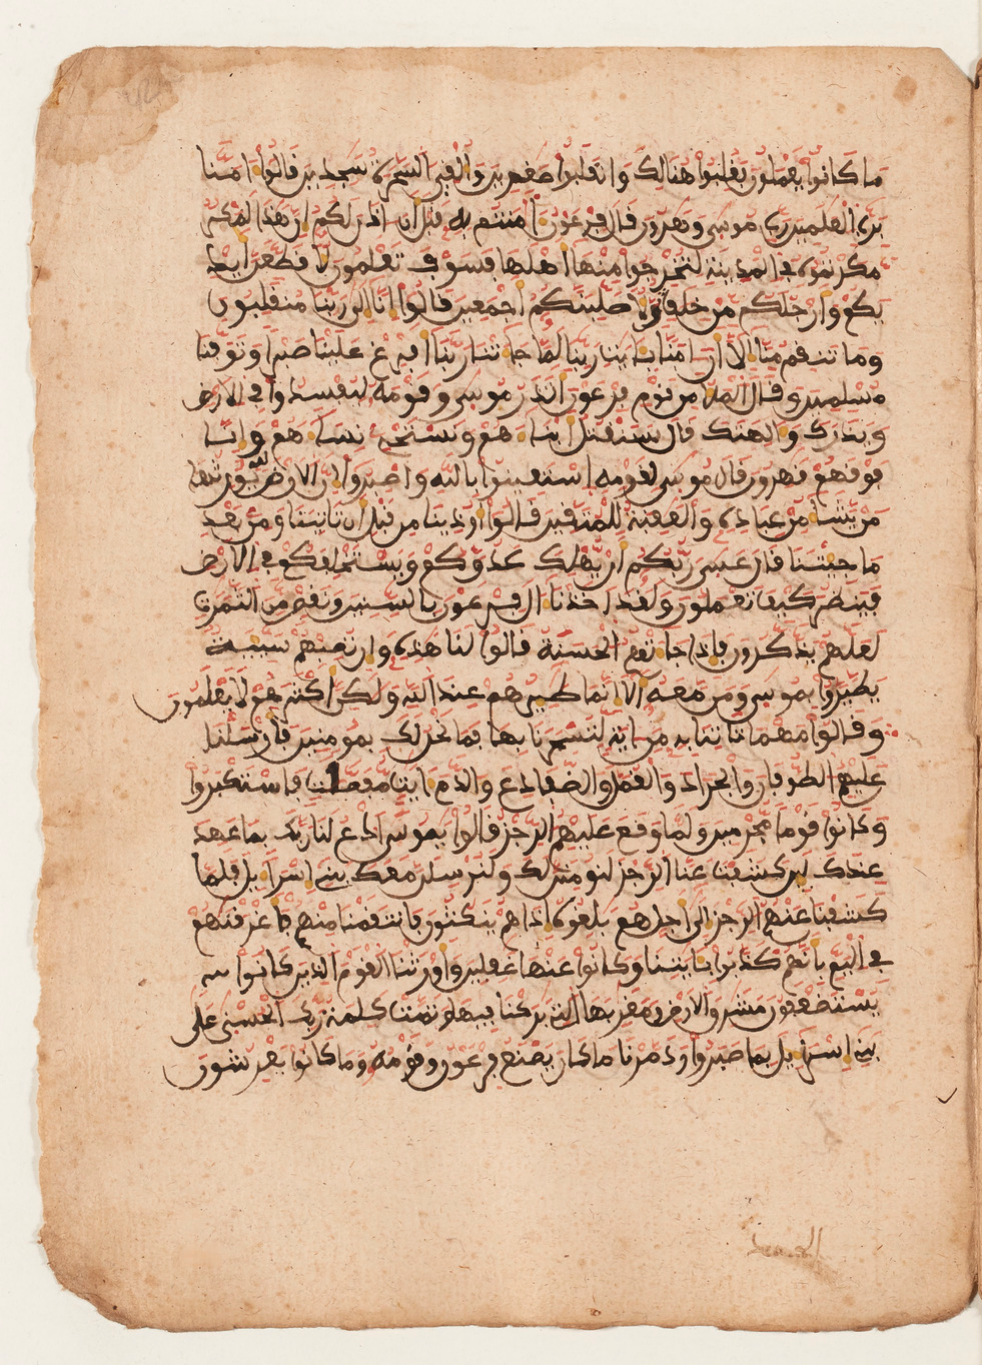 ما كانوا يعملون فغلبوا هنالك وانقلبوا صغرين والقي السحرة سجدين قالوا امنا
برب العلمين رب موسى وهرون قال فرعون ءامنتم به قبل ان اذن لكم ان هذا لمكر
مكرتموه في المدينة لتخرجوا منها اهلها فسوف تعلمون لاقطعن ايد
يكم وارجلكم من خلف ثم لاصلبنكم اجمعين قالوا انا الى ربنا منقلبون
وما تنقم منا الا ان امنا بايت ربنا لما جاتنا ربنا افرغ علينا صبرا وتوفنا
مسلمين وقال الملا من قوم فرعون اتذر موسى وقومه ليفسدوا في الارض
ويذرك والهتك قال سنقتل ابناهم ونستحي نساهم وانا
فوقهم قهرون قال موسى لقومه استعينوا بالله واصبروا ان الارض لله يورثها
من يشا من عباده والعقبة للمتقين قالوا اوذينا من قبل ان تاتينا ومن بعد
ما جيتنا قال عسى ربكم ان يهلك عدوكم ويستخلفكم في الارض
فينظر كيف تعملون ولقد اخذنا ال فرعون بالسنين ونقص من الثمرت
لعلهم يذكرون فاذا جاتهم الحسنة قالوا لنا هذه وان تصبهم سيية
يطيروا بموسى ومن معه الا انما طيرهم عند الله ولكن اكثرهم لا يعلمون
وقالوا مهما تاتنا به من اية لتسحرنا بها فما نحن لك بمومنين فارسلنا
عليهم الطوفان والجراد والقمل والضفادع والدم ايت مفصلت فاستكبروا
وكانوا قوما مجرمين ولما وقع عليهم الرجز قالوا يموسى ادع لنا ربك بما عهد
عندك لين كشفت عنا الرجز لنومنن لك ولنرسلن معك بني اسرايل فلما
كشفنا عنهم الرجز الى اجل هم بلغوه اذا هم ينكثون فانتقمنا منهم فاغرقنهم
في اليم بانهم كذبوا بايتنا وكانوا عنها غفلين واورثنا القوم الذين كانوا
يستضعفون مشرق الارض ومغربها التي بركنا فيها وتمت كلمت ربك الحسنى على
بني اسرايل بما صبروا ودمرنا ما كان يصنع فرعون وقومه وما كانوا يعرشون